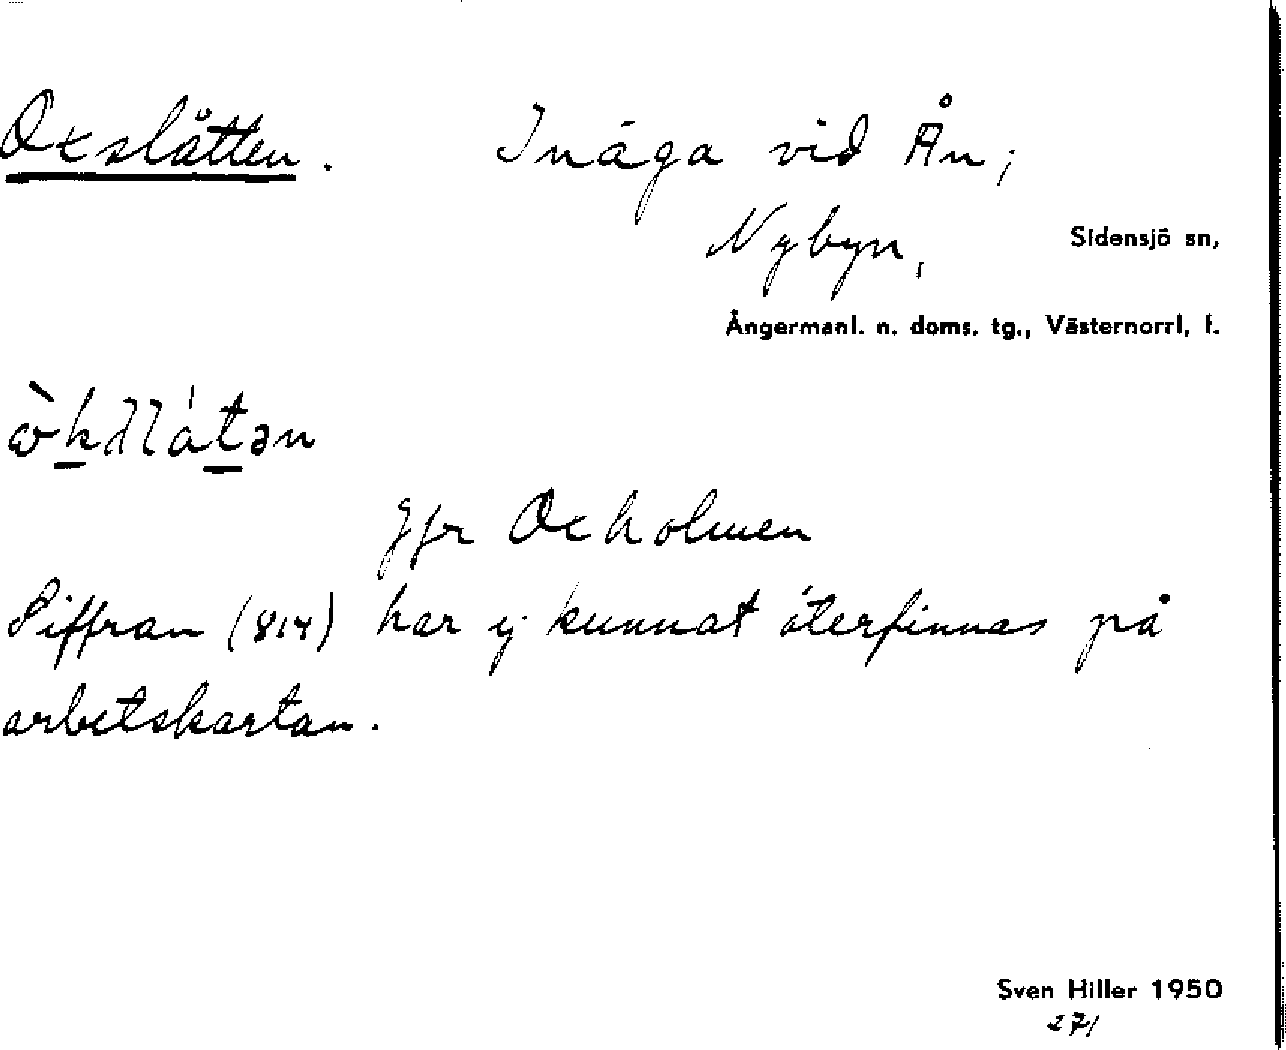 Oxslåtten. Inäga vid Ån;
Nybyn, Sidensjö sn,
Ångermanl. n. doms. tg., Västernorrl. l.
Jfr Oxholmen
Siffran (814) har ej kunnat återfinnas på
arbetskartan.
Sven Hiller 1950
271